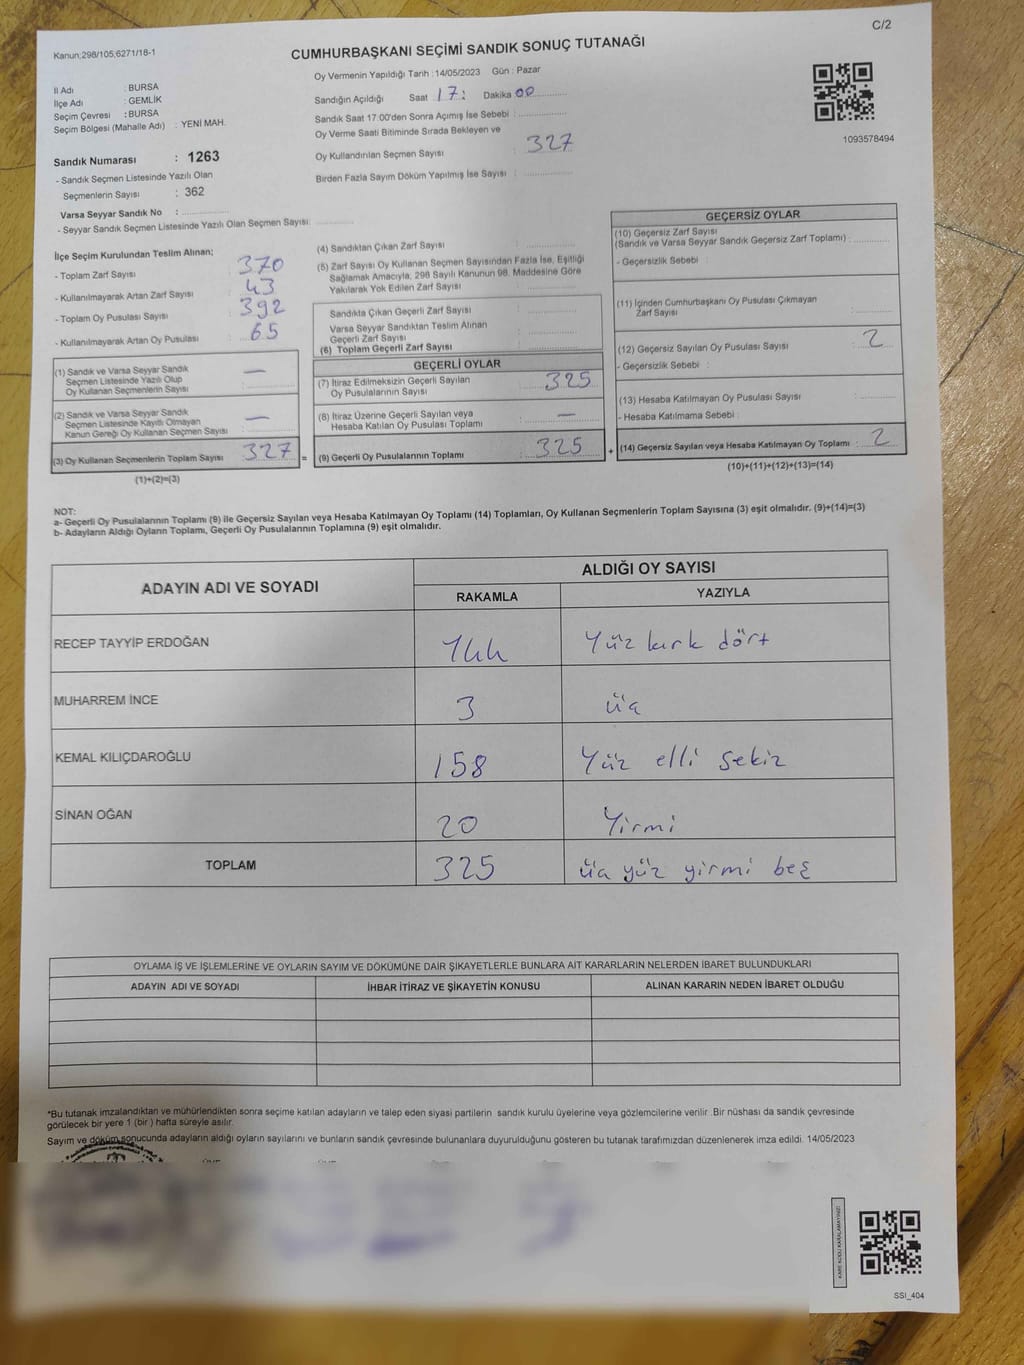 C/2
Kanun:298/105;6271/18-1
CUMHURBAŞKANI SEÇİMİ SANDIK SONUÇ TUTANAĞI
Oy Vermenin Yapıldığı Tarih : 14/05/2023 Gün : Pazar
İl Adı : BURSA
İlçe Adı : GEMLİK
Seçim Çevresi : BURSA
Seçim Bölgesi (Mahalle Adı) : YENİ MAH.
Sandığın Açıldığı Saat 17: Dakika 00
Sandık Saat 17:00'den Sonra Açımış İse Sebebi :
Oy Verme Saati Bitiminde Sırada Bekleyen ve
Oy Kullandırılan Seçmen Sayısı : 327
Birden Fazla Sayım Döküm Yapılmış İse Sayısı :
1093578494
Sandık Numarası : 1263
- Sandık Seçmen Listesinde Yazılı Olan
Seçmenlerin Sayısı : 362
Varsa Seyyar Sandık No :
- Seyyar Sandık Seçmen Listesinde Yazılı Olan Seçmen Sayısı:
İlçe Seçim Kurulundan Teslim Alınan;
- Toplam Zarf Sayısı : 370
- Kullanılmayarak Artan Zarf Sayısı : 43
- Toplam Oy Pusulası Sayısı : 392
- Kullanılmayarak Artan Oy Pusulası : 65
(1) Sandık ve Varsa Seyyar Sandık
Seçmen Listesinde Yazılı Olup
Oy Kullanan Seçmenlerin Sayısı : —
(2) Sandık ve Varsa Seyyar Sandık
Seçmen Listesinde Kayıtlı Olmayan
Kanun Gereği Oy Kullanan Seçmen Sayısı : —
(3) Oy Kullanan Seçmenlerin Toplam Sayısı : 327 =
(1)+(2)=(3)
(4) Sandıktan Çıkan Zarf Sayısı :
(5) Zarf Sayısı Oy Kullanan Seçmen Sayısından Fazla İse, Eşitliği
Sağlamak Amacıyla, 298 Sayılı Kanunun 98. Maddesine Göre
Yakılarak Yok Edilen Zarf Sayısı :
Sandıkta Çıkan Geçerli Zarf Sayısı :
Varsa Seyyar Sandıktan Teslim Alınan
Geçerli Zarf Sayısı :
(6) Toplam Geçerli Zarf Sayısı :
GEÇERLİ OYLAR
(7) İtiraz Edilmeksizin Geçerli Sayılan
Oy Pusulalarının Sayısı : 325
(8) İtiraz Üzerine Geçerli Sayılan veya
Hesaba Katılan Oy Pusulası Toplamı : —
(9) Geçerli Oy Pusulalarının Toplamı : 325 +
GEÇERSİZ OYLAR
(10) Geçersiz Zarf Sayısı
(Sandık ve Varsa Seyyar Sandık Geçersiz Zarf Toplamı) :
- Geçersizlik Sebebi :
(11) İçinden Cumhurbaşkanı Oy Pusulası Çıkmayan
Zarf Sayısı :
(12) Geçersiz Sayılan Oy Pusulası Sayısı : 2
- Geçersizlik Sebebi :
(13) Hesaba Katılmayan Oy Pusulası Sayısı :
- Hesaba Katılmama Sebebi :
(14) Geçersiz Sayılan veya Hesaba Katılmayan Oy Toplamı : 2
(10)+(11)+(12)+(13)=(14)
NOT:
a- Geçerli Oy Pusulalarının Toplamı (9) ile Geçersiz Sayılan veya Hesaba Katılmayan Oy Toplamı (14) Toplamları, Oy Kullanan Seçmenlerin Toplam Sayısına (3) eşit olmalıdır. (9)+(14)=(3)
b- Adayların Aldığı Oyların Toplamı, Geçerli Oy Pusulalarının Toplamına (9) eşit olmalıdır.
ADAYIN ADI VE SOYADI ALDIĞI OY SAYISI
RAKAMLA YAZIYLA
RECEP TAYYİP ERDOĞAN 144 Yüz kırk dört
MUHARREM İNCE 3 üç
KEMAL KILIÇDAROĞLU 158 Yüz elli sekiz
SİNAN OĞAN 20 Yirmi
TOPLAM 325 üç yüz yirmi beş
OYLAMA İŞ VE İŞLEMLERİNE VE OYLARIN SAYIM VE DÖKÜMÜNE DAİR ŞİKAYETLERLE BUNLARA AİT KARARLARIN NELERDEN İBARET BULUNDUKLARI
ADAYIN ADI VE SOYADI İHBAR İTİRAZ VE ŞİKAYETİN KONUSU ALINAN KARARIN NEDEN İBARET OLDUĞU
*Bu tutanak imzalandıktan ve mühürlendikten sonra seçime katılan adayların ve talep eden siyasi partilerin sandık kurulu üyelerine veya gözlemcilerine verilir. Bir nüshası da sandık çevresinde
görülecek bir yere 1 (bir) hafta süreyle asılır.
Sayım ve döküm sonucunda adayların aldığı oyların sayılarını ve bunların sandık çevresinde bulunanlara duyurulduğunu gösteren bu tutanak tarafımızdan düzenlenerek imza edildi. 14/05/2023
KARE KODU KARALAMAYINIZ!
SSI_404